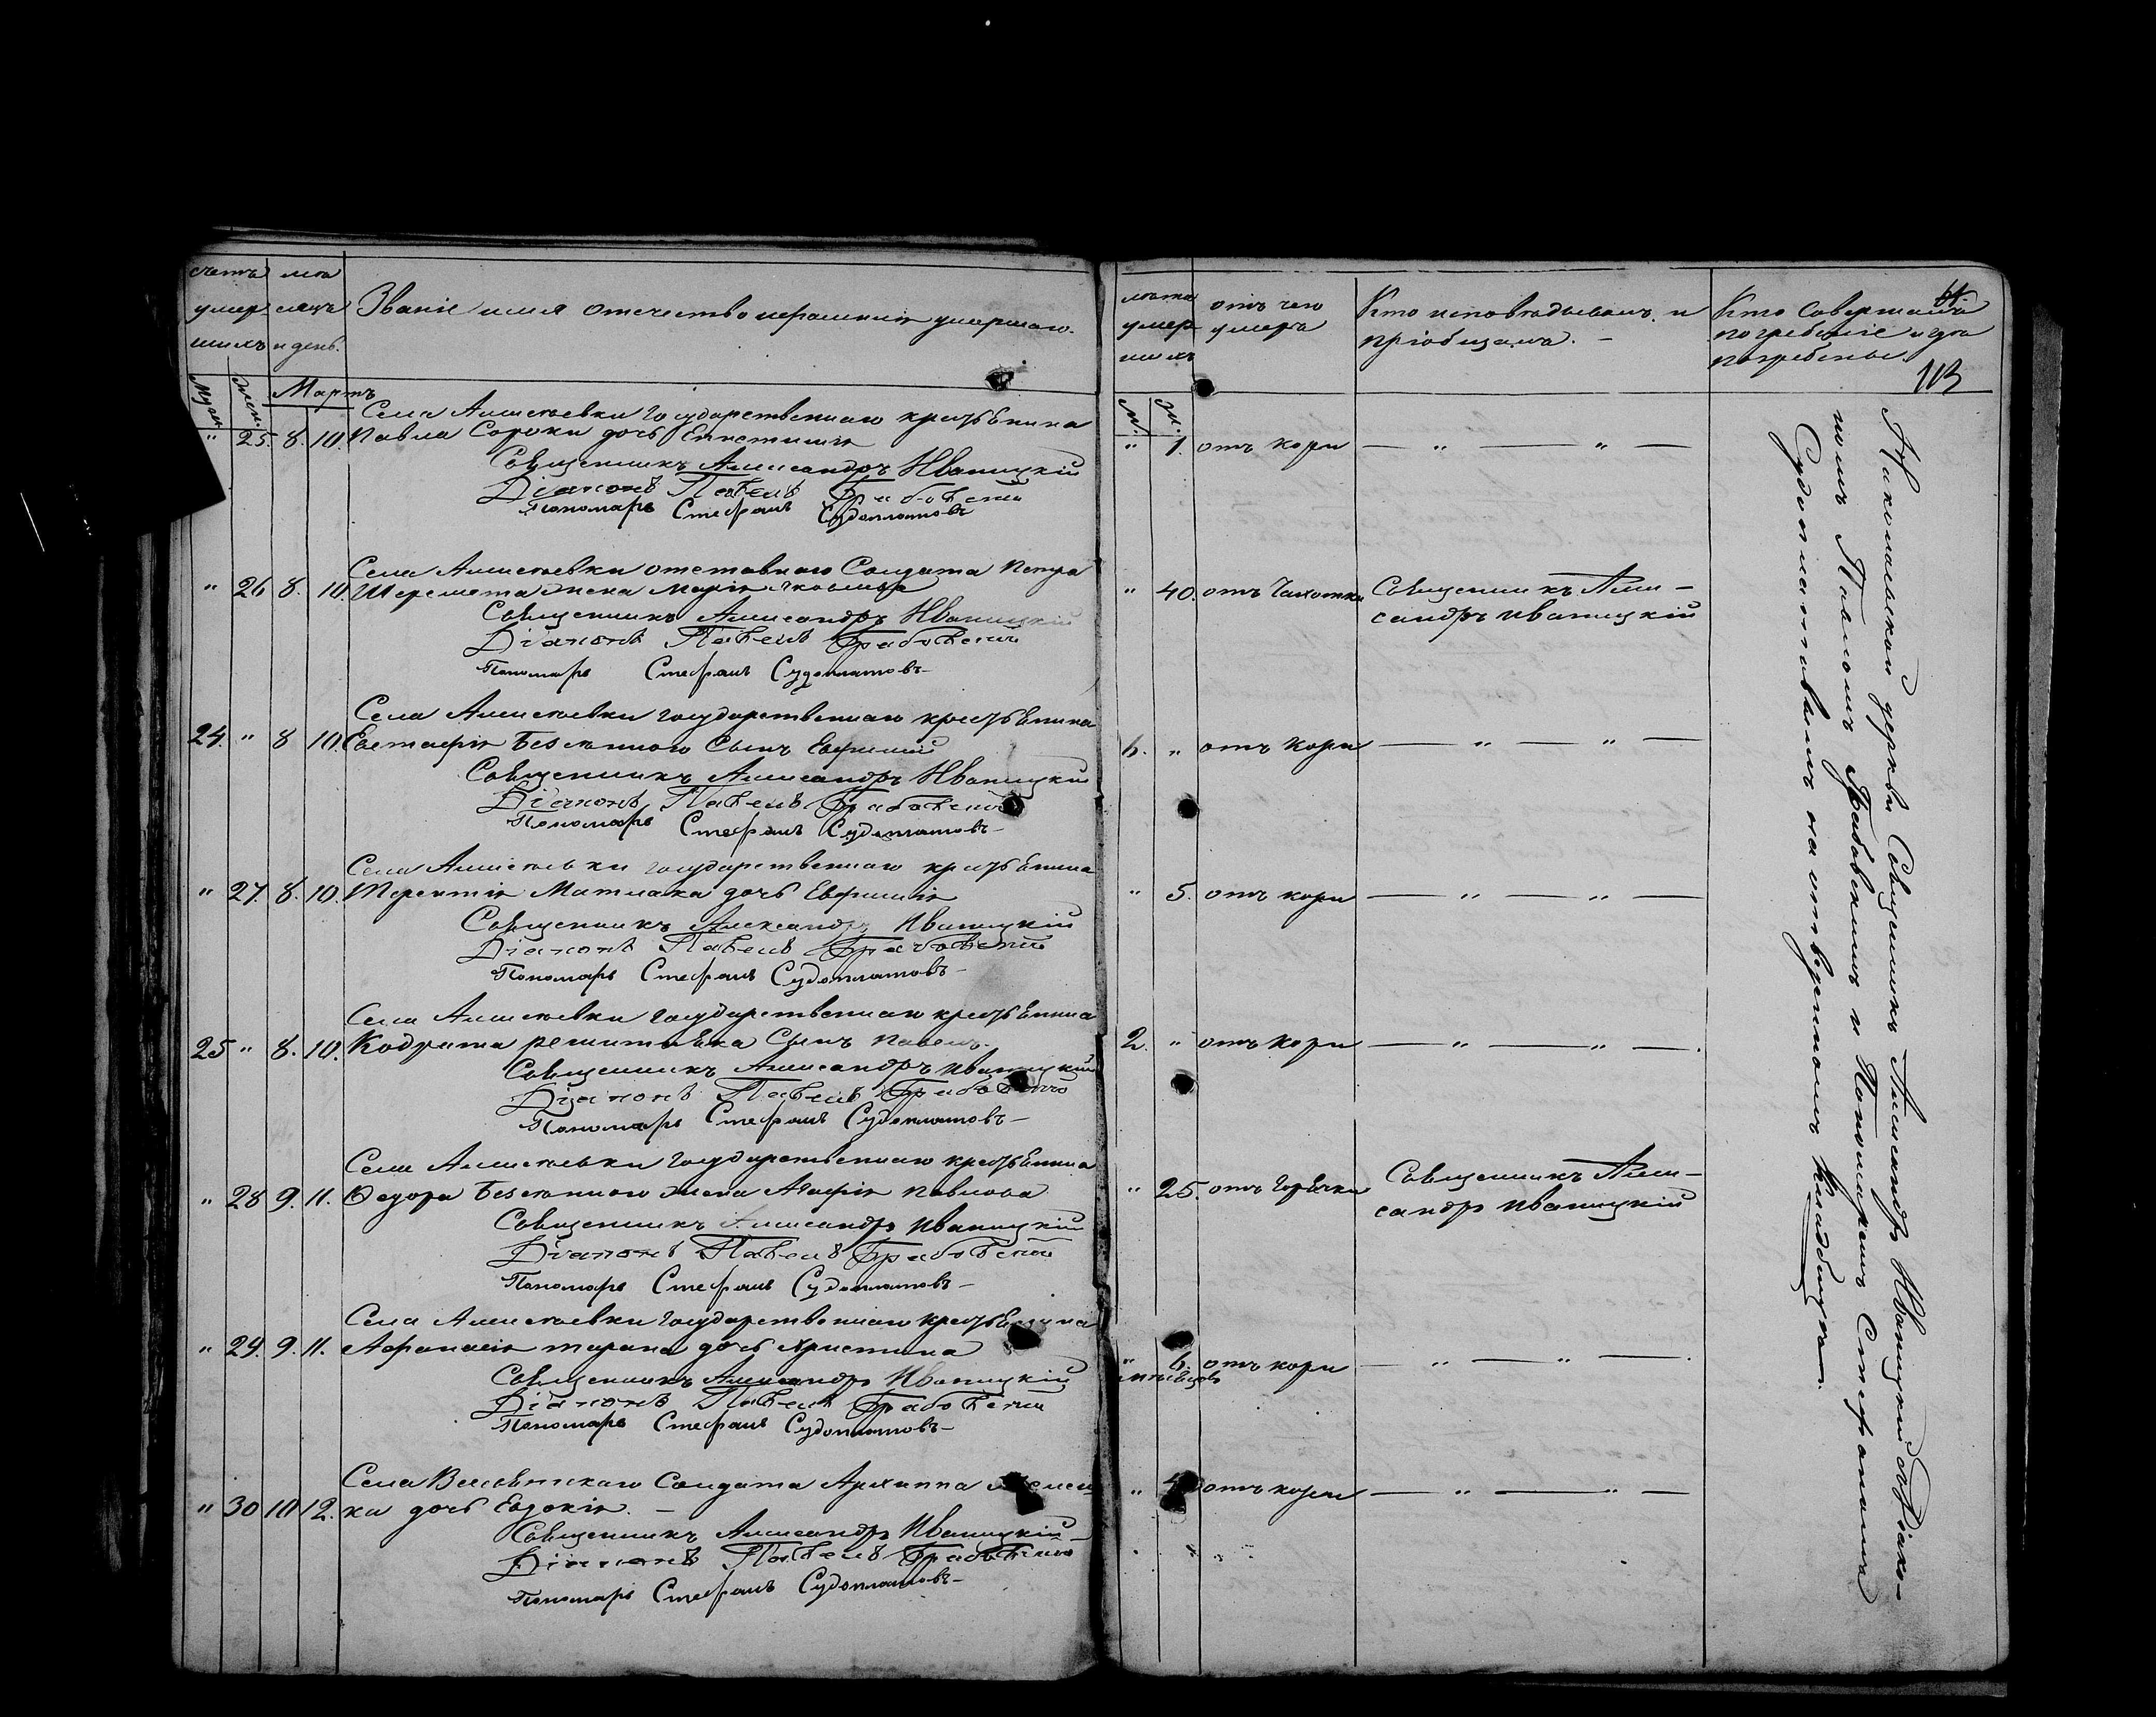 счетъ
умер
шихъ
мѣ
сяцъ
и день.
Званіе имя отечество и фамилія умершаго.
Март
" 25. 8. 10.
Села Алексѣевки Государственнаго крестьянина
Павла Сороки дочь Епистимія
Священникъ Александръ Иваницкій
Діаконъ Павелъ Грабовскій
Пономарь Стефанъ Судоплатовъ
Села Алексѣевки отставнаго Солдата Петра
" 26 8. 10. Шеремета жена Марія
Священникъ Александръ Иваницкій
Діаконъ Павелъ Грабовскій
Пономарь Стефанъ Судоплатовъ
Села Алексѣевки Государственнаго крестьянина
24. " 8 10. Евстафія Безсѣннаго Сынъ Евфимій
Священникъ Александръ Иваницкій
Діаконъ Павелъ Грабовскій
Пономарь Стефанъ Судоплатовъ
Села Алексѣевки Государственнаго крестьянина
" 27. 8. 10. Терентія Матлаха дочь Евфимія
Священникъ Александръ Иваницкій
Діаконъ Павелъ Грабовскій
Пономарь Стефанъ Судоплатовъ
Села Алексѣевки Государственнаго крестьянина
25 " 8. 10. Кодрата Сынъ Павелъ.
Священникъ Александръ Иваницкій
Діаконъ Павелъ Грабовскій
Пономарь Стефанъ Судоплатовъ
Села Алексѣевки Государственнаго крестьянина
" 28 9. 11. Ѳедора Безсѣннаго жена Агафія Павлова
Священникъ Александръ Иваницкій
Діаконъ Павелъ Грабовскій
Пономарь Стефанъ Судоплатовъ
Села Алексѣевки Государственнаго крестьянина
" 29. 9. 11. Афанасія тарана дочь Христина
Священникъ Александръ Иваницкій
Діаконъ Павелъ Грабовскій
Пономарь Стефанъ Судоплатовъ
Села Солдата Архиппа
" 30 10 12. ка дочь Евдокія.
Священникъ Александръ Иваницкій
Діаконъ Павелъ Грабовскій
Пономарь Стефанъ Судоплатовъ
лѣта
умер
шихъ
отъ чего
умеръ
Кто исповѣдывалъ и
пріобщалъ.
Кто совершалъ
погребеніе и гдѣ
погребены
113
" 1. отъ кори — " — " —
" 40. отъ Чахотки Священникъ Алек-
сандръ Иваницкій
6. " отъ кори — " — " —
" 5. отъ кори — " — " —
2. " отъ кори — " — " —
" 25. отъ Горячки Священникъ Алек-
сандръ Иваницкій
" 6. отъ кори — " — " —
мѣсяцовъ
" отъ кори — " — " —
Николаевской церкви Священникъ Александръ Иваницкій съ Діако-
номъ Павломъ Грабовскимъ и Пономаремъ Стефаномъ
Судоплатовымъ на отведенномъ кладбищѣ.